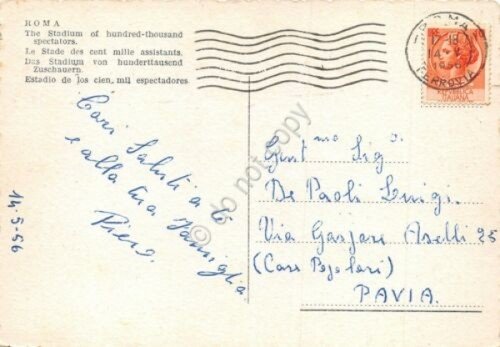 ROMA
The Stadium of hundred-thousand
spectators.
Le Stade des cent mille assistants.
Das Stadium von hunderttausend
Zuschauern.
Estadio de los cien, mil espectadores
Cari Saluti a te
e alla tua famiglia
Piero.
14-5-56
ROMA
FERROVIA
REPVBBLICA
ITALIANA
Gent.mo Sig.
De Paoli Luigi.
Via Gaspare Aselli 25
(Case Popolari)
PAVIA.
do not copy